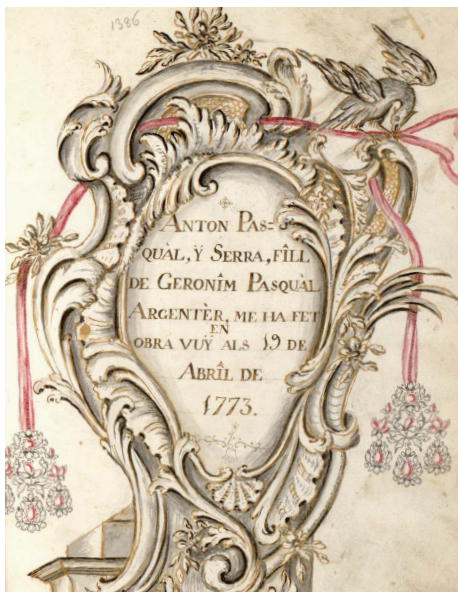 1386
ANTON PAS=
QUÀL, Ÿ SERRA, FÎLL
DE GERONÎM PASQUÀL
ARGENTÈR, ME HA FET
EN
OBRA VUŸ ALS 19 DE
ABRÎL DE
1773.